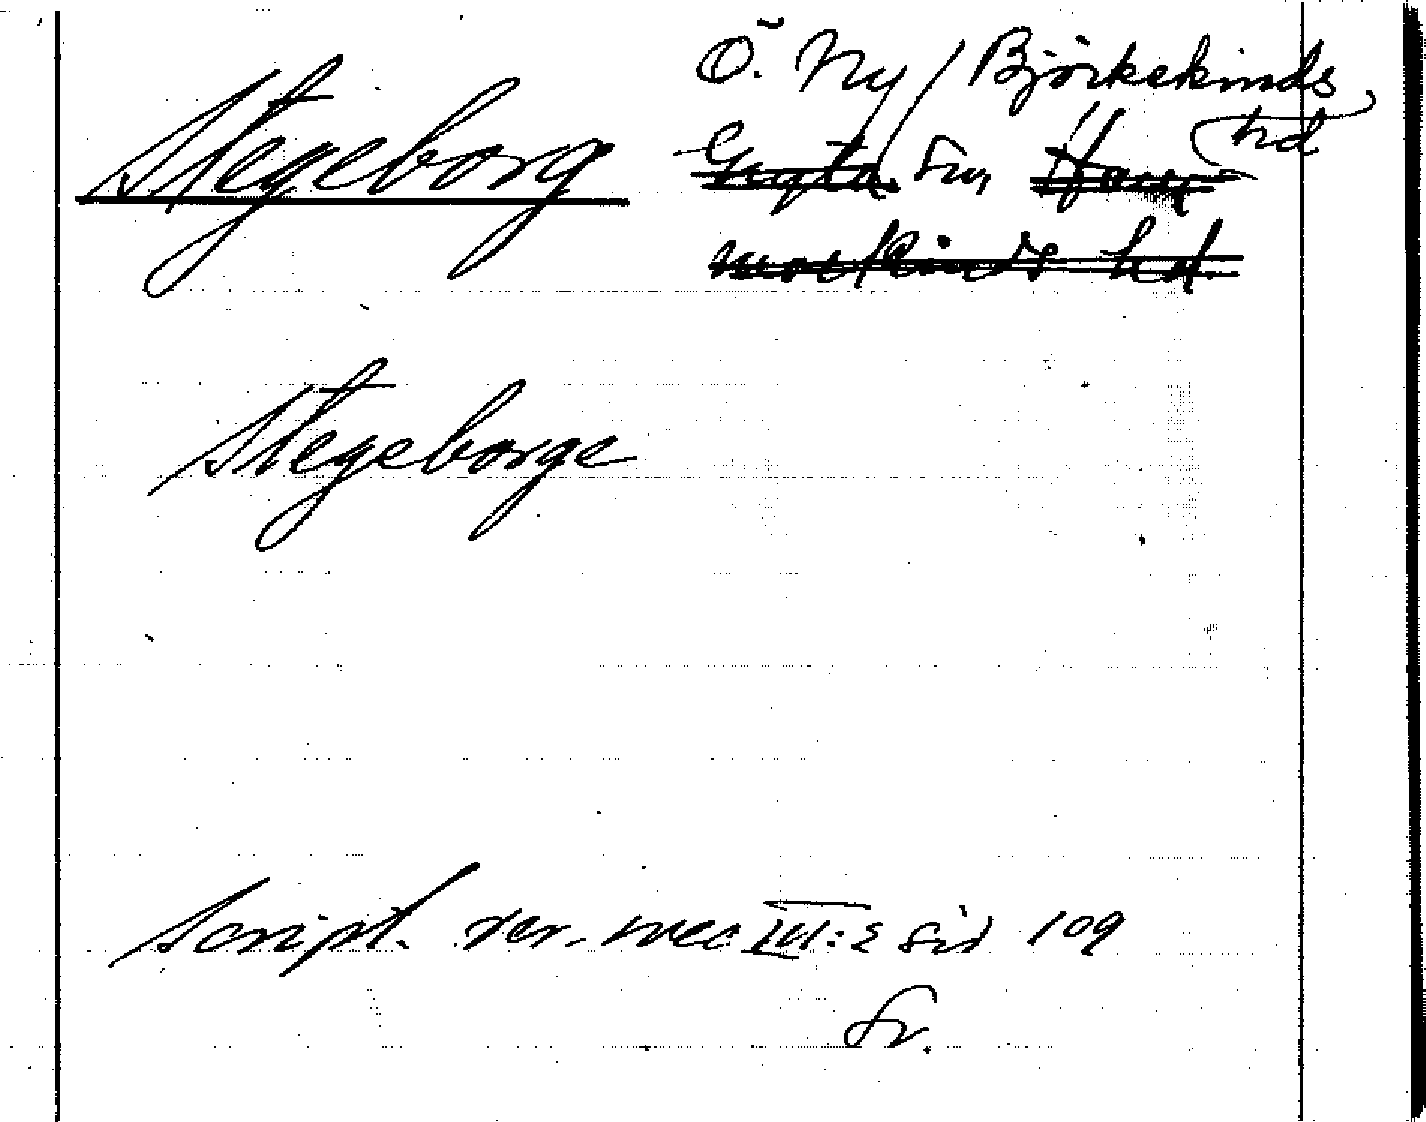 Stegeborg
Ö. Ny / Björkekinds
hd
Gryta. sn, Ham
markinds hd.
Stegeborge
Script. rer. svec III:2 sid 109
Sv.